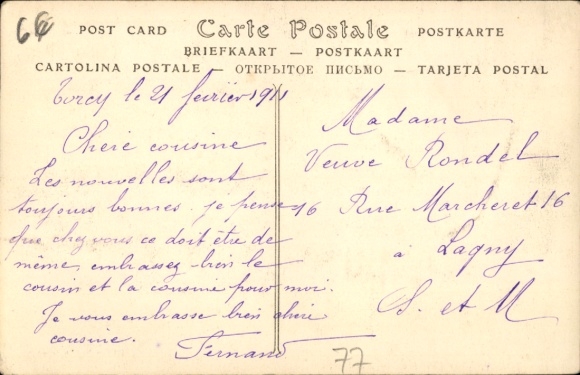 66
POST CARD Carte Postale POSTKARTE
BRIEFKAART — POSTKAART
CARTOLINA POSTALE — ОТКРЫТОЕ ПИСЬМО — TARJETA POSTAL
Torcy le 21 fevrier 1911
Chere cousine
Les nouvelles sont
toujours bonnes. je pense
que chez vous ce doit être de
même, embrassez bien le
cousin et la cousine pour moi.
Je vous embrasse bien chère
cousine.
Fernand
Madame
Veuve Rondel
16 Rue Marcheret 16
à Lagny
S. et M
77